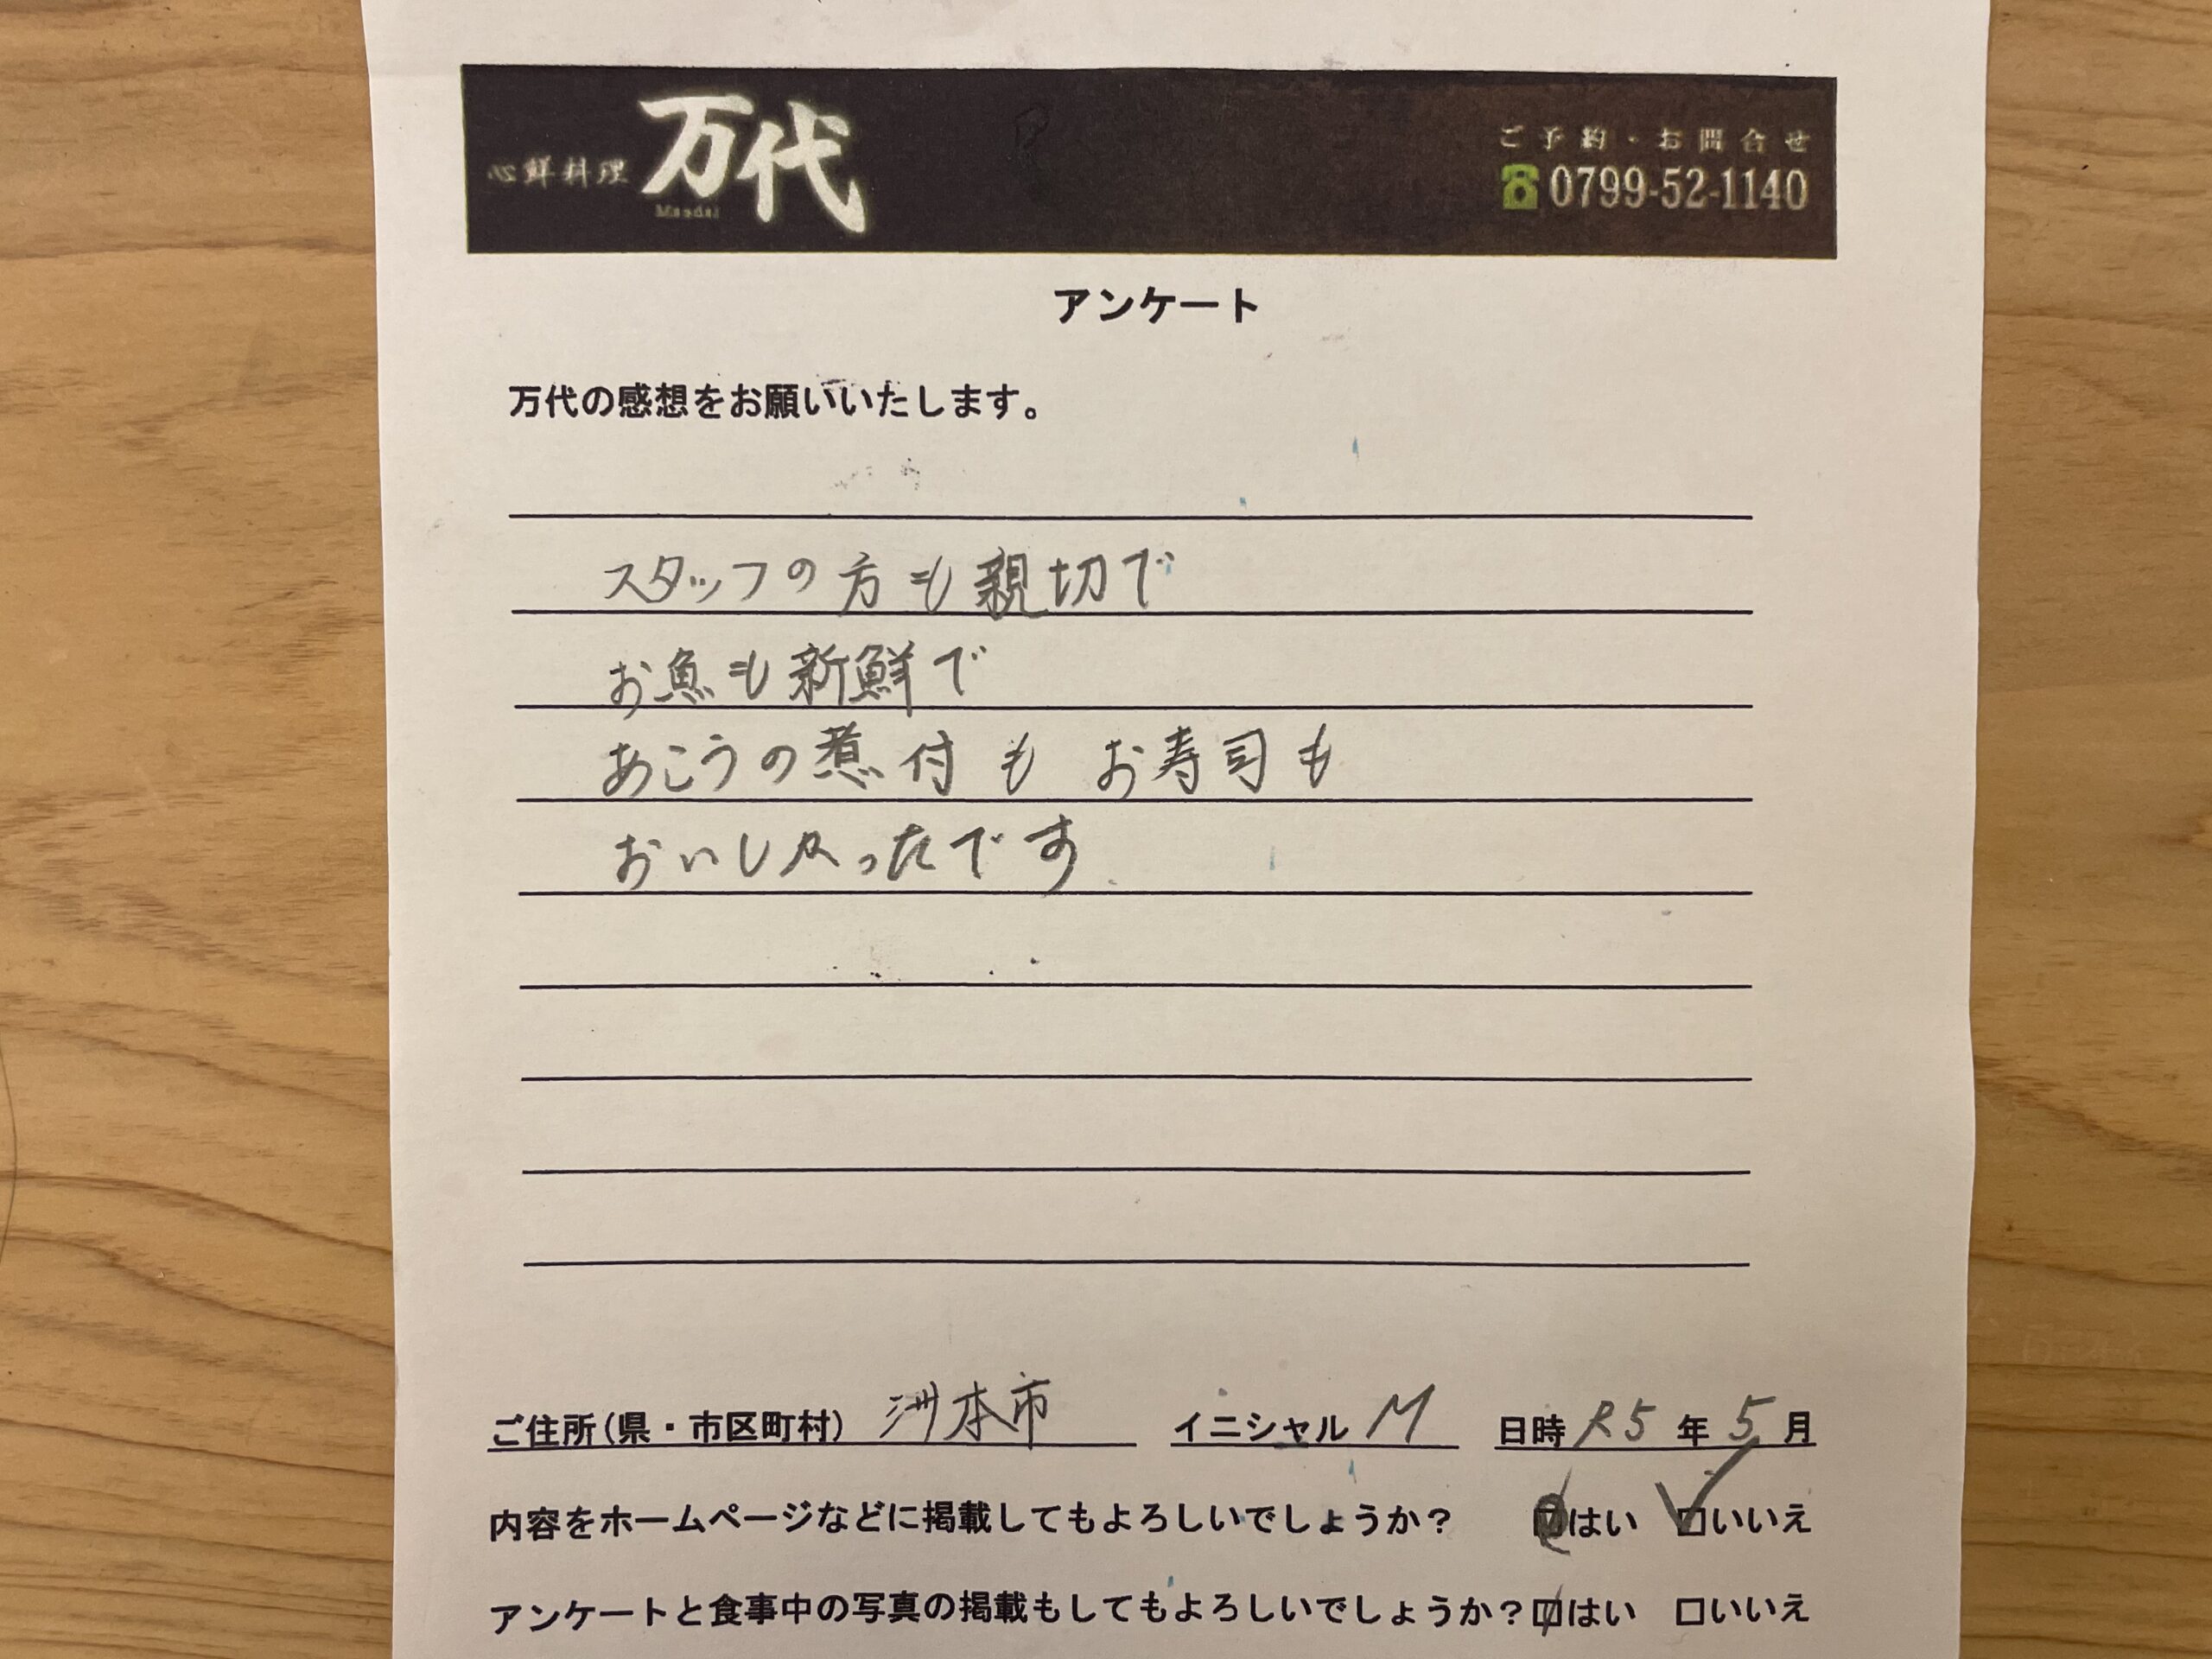 心鮮料理 万代
Mandai
ご予約・お問合せ
0799-52-1140
アンケート
万代の感想をお願いいたします。
スタッフの方も親切で
お魚も新鮮で
あこうの煮付も お寿司も
おいしかったです
ご住所(県・市区町村) 洲本市 イニシャル M 日時 R5 年 5 月
内容をホームページなどに掲載してもよろしいでしょうか? ☑はい ☑いいえ
アンケートと食事中の写真の掲載もしてもよろしいでしょうか?☑はい □いいえ